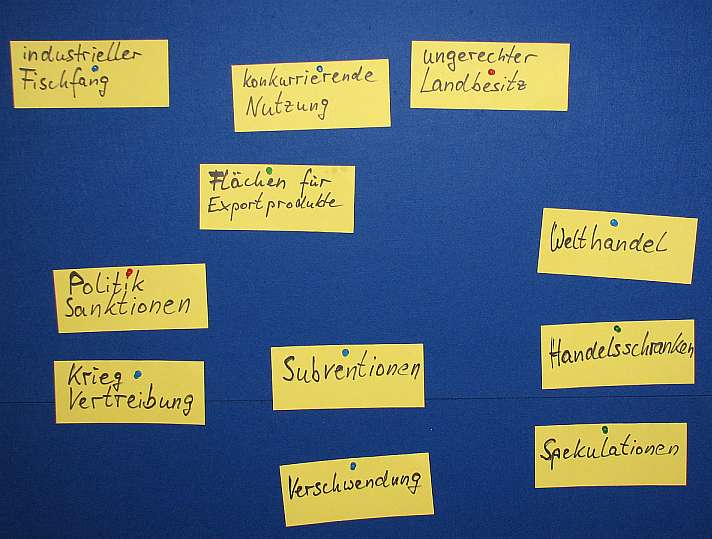 industrieller
Fischfang
konkurrierende
Nutzung
ungerechter
Landbesitz
Flächen für
Exportprodukte
Welthandel
Politik
Sanktionen
Handelsschranken
Krieg
Vertreibung
Subventionen
Spekulationen
Verschwendung